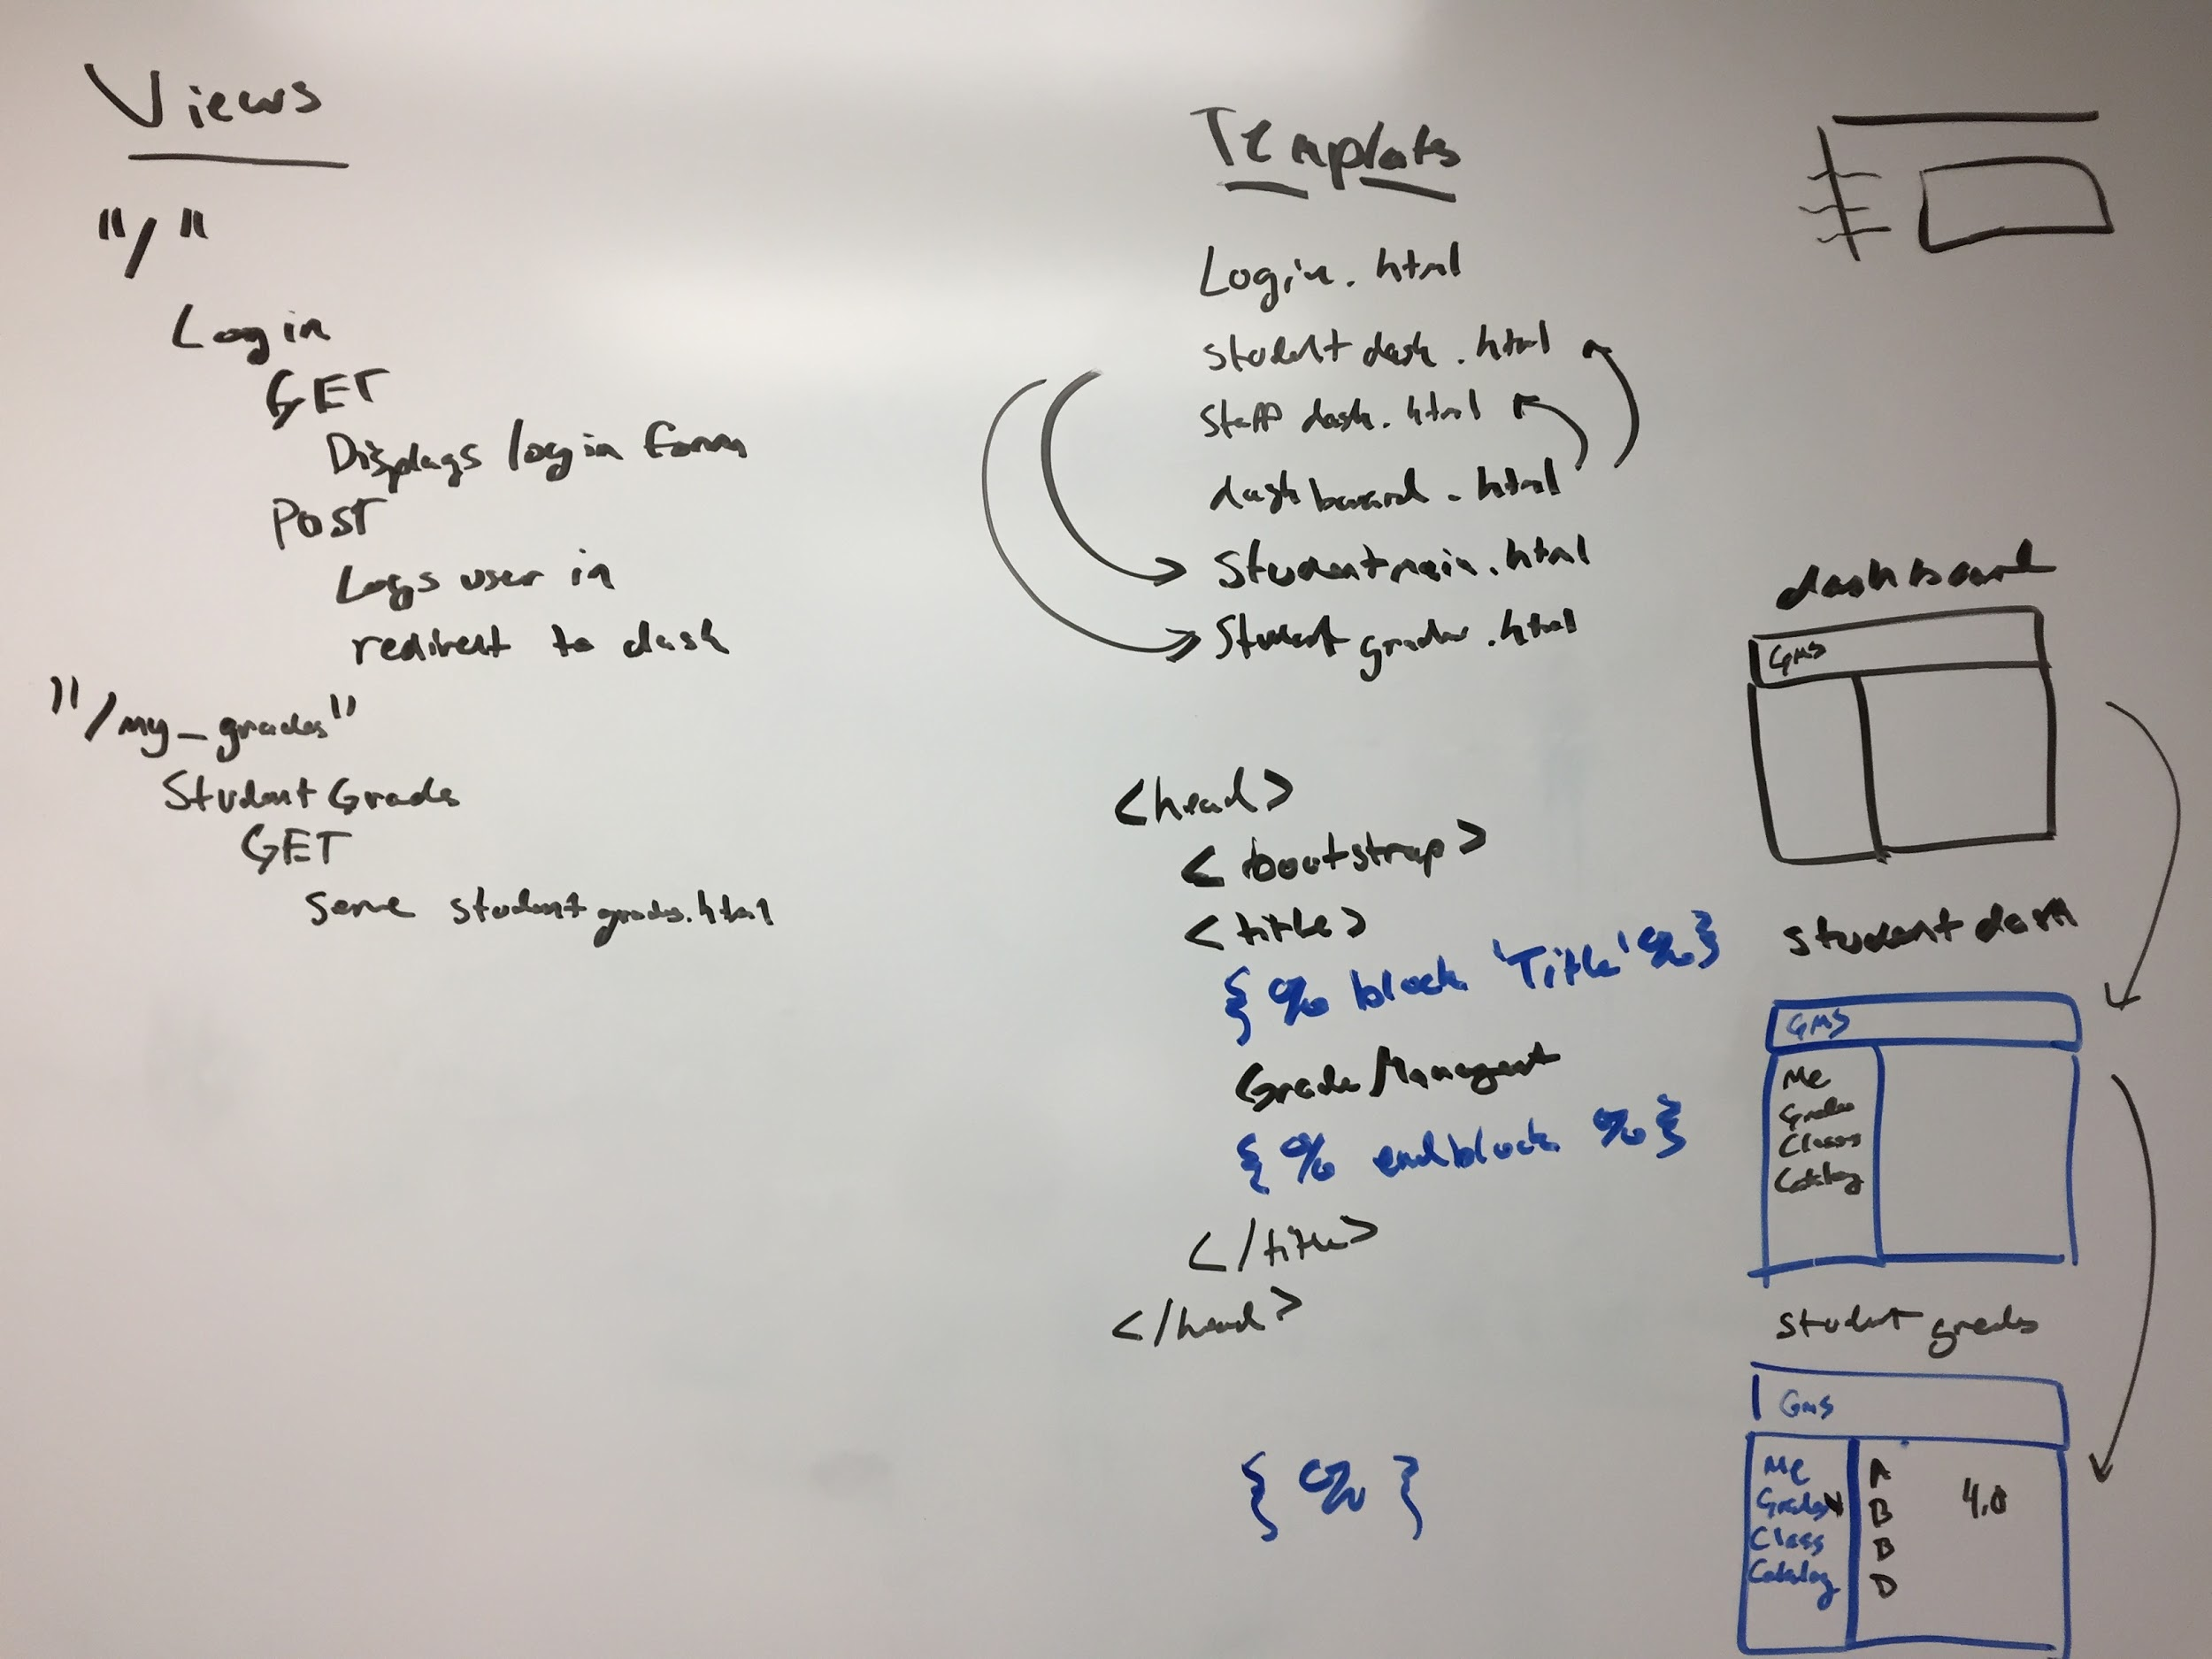 Views
"/"
Login
GET
Displays login form
POST
Logs user in
redirect to dash
"/my_grades"
Student Grades
GET
serve studentgrades.html
Templates
Login.html
studentdash.html
staffdash.html
dashboard.html
Studentmain.html
Studentgrades.html
<head>
<bootstrap>
<title>
{% block 'Title' %}
Grade Managent
{% endblock %}
</title>
</head>
{%}
dashboard
GMS
student dash
GMS
Me
Grades
Classes
Catalog
student grades
GMS
Me A
Grades B 4.0
Class B
Catalog D